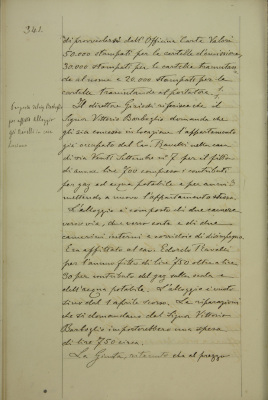 341.
di provvedersi dall'Officina Carte Valori
50.000 stampati per le cartelle d'emissione,
30.000 stampati per le cartelle tramutan-
de al nome e 20.000 stampati per le
cartelle tramutande al portatore.
Il direttore riferisce che il
Signor Vittorio Barbaglio domanda che
gli sia concesso in locazione l'appartamento
già occupato dal Cav. nella casa
di via Venti Settembre n° 7 per il fitto
di annue lire 700 compreso i contributi
per gaz ed acqua potabile e per anni 3
mettendo a nuovo l'appartamento stesso.
L'alloggio si compone di due camere
verso via, due verso corte e di due
camerini interni e corridoio di disimpegno.
Era affittato al cav. Edoardo
per l'annuo fitto di lire 750 oltre a lire
30 per contributo del gaz sulla scala e
dell'acqua potabile. L'alloggio è vuoto
sino dal 1 aprile scorso. Le riparazioni
che si domandano dal Signor Vittorio
Barbaglio importerebbero una spesa
di lire 750 circa.
La Giunta, ritenuto che il prezzo